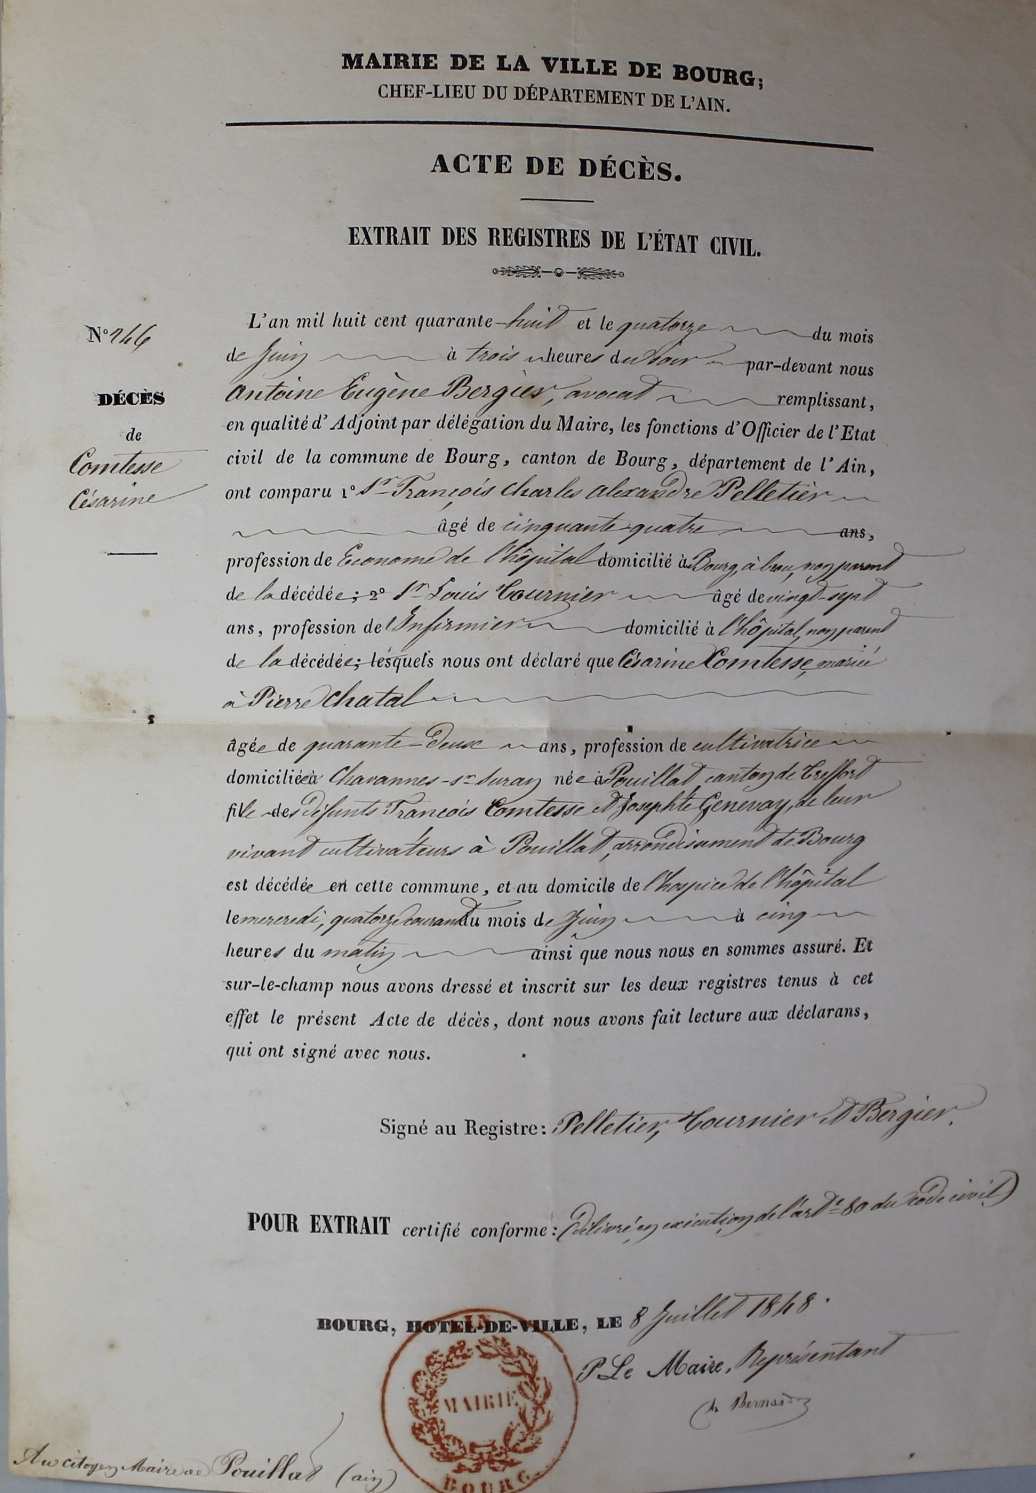 MAIRIE DE LA VILLE DE BOURG;
CHEF-LIEU DU DÉPARTEMENT DE L'AIN.
ACTE DE DÉCÈS.
EXTRAIT DES REGISTRES DE L'ÉTAT CIVIL.
N° 246
DÉCÈS
de
Comtesse
Césarine
L'an mil huit cent quarante-huit et le quatorze du mois
de Juin à trois heures du soir par-devant nous
Antoine Eugène Bergier, avocat remplissant,
en qualité d'Adjoint par délégation du Maire, les fonctions d'Officier de l'Etat
civil de la commune de Bourg, canton de Bourg, département de l'Ain,
ont comparu 1° Sr François Charles Alexandre Pelletier
âgé de cinquante-quatre ans,
profession de Econome de l'hôpital domicilié à Bourg, à brou, non parent
de la décédée; 2° Sr Louis Tournier âgé de vingt-sept
ans, profession de Infirmier domicilié à l'hôpital, non parent
de la décédée; lesquels nous ont déclaré que Césarine Comtesse, mariée
à Pierre Chatal
âgée de quarante-deux ans, profession de cultivatrice
domiciliée à Chavannes-sr-Suran née à Pouillat canton de Treffort
fille des défunts François Comtesse et Josephte Genevay, de leur
vivant cultivateurs à Pouillat, arrondisement de Bourg
est décédée en cette commune, et au domicile de l'hospice de l'hôpital
le mercredi, quatorze courant du mois de Juin à cinq
heures du matin ainsi que nous nous en sommes assuré. Et
sur-le-champ nous avons dressé et inscrit sur les deux registres tenus à cet
effet le présent Acte de décès, dont nous avons fait lecture aux déclarans,
qui ont signé avec nous.
Signé au Registre: Pelletier, Tournier et Bergier.
POUR EXTRAIT certifié conforme: (délivré, en exécution de l'art. 80 du code civil)
BOURG, HOTEL-DE-VILLE, LE 8 Juillet 1848.
P. Le Maire, Représentant
MAIRIE
BOURG.
Au citoyen Maire de Pouillat (ain)